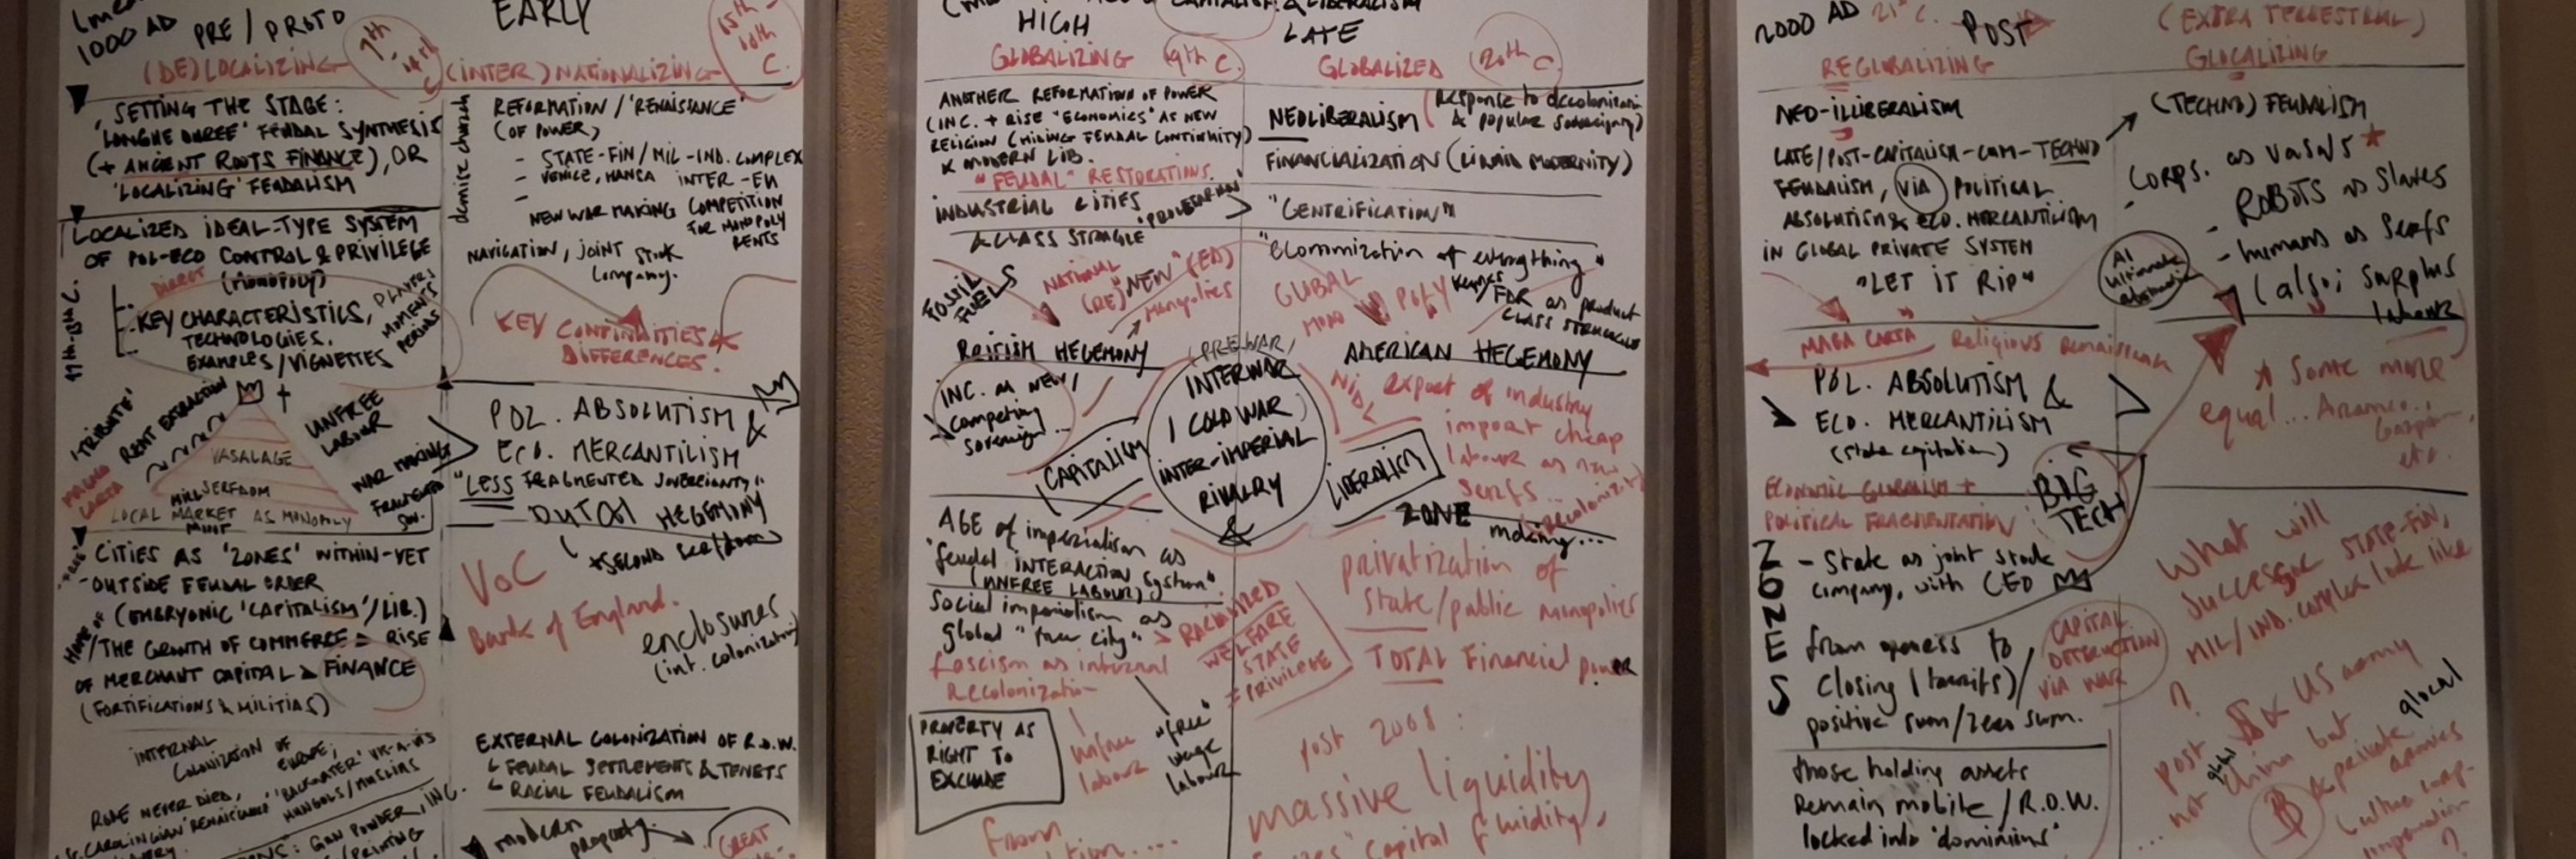 1000 AD PRE / PROTO
(DE)LOCALIZING
9th - 14th C
SETTING THE STAGE:
'LONGUE DUREE' FEUDAL SYNTHESIS
(+ ANCIENT ROOTS FINANCE), OR
'LOCALIZING' FEUDALISM
LOCALIZED IDEAL-TYPE SYSTEM
OF POL-ECO CONTROL & PRIVILEGE
DIRECT (MONOPOLY)
KEY CHARACTERISTICS, PLAYERS
TECHNOLOGIES. MOMENTS
EXAMPLES / VIGNETTES PERIODS
'TRIBUTE'
RENT EXTRACTION
UNFREE
LABOUR
MAGNA
CARTA
VASALAGE
MILL SERFDOM
LOCAL MARKET AS MONOPOLY
MINT
WAR MAKING
FRAGMENTED
SOV.
CITIES AS 'ZONES' WITHIN-YET
-OUTSIDE FEUDAL ORDER
(EMBRYONIC 'CAPITALISM' / LIB.)
/ THE GROWTH OF COMMERCE = RISE
OF MERCHANT CAPITAL & FINANCE
(FORTIFICATIONS & MILITIAS)
INTERNAL
COLONIZATION OF
EUROPE,
'BACKWATER' VIS-A-VIS
MONGOLS / MUSLIMS
ROME NEVER DIED,
CAROLINGIAN RENAISSANCE
GUN POWDER, INC.
PRINTING
EARLY
(INTER)NATIONALIZING
15th - 18th C.
demise church
REFORMATION / 'RENAISSANCE'
(OF POWER)
- STATE-FIN / MIL-IND. COMPLEX
- VENICE, HANSA INTER-EU
- NEW WAR MAKING COMPETITION
FOR MONOPOLY
RENTS
NAVIGATION, JOINT STOCK
Company.
KEY CONTINUITIES &
DIFFERENCES.
POL. ABSOLUTISM &
ECO. MERCANTILISM
"LESS FRAGMENTED SOVEREIGNTY"
DUTCH HEGEMONY
+ SECOND serfdom
VOC
Bank of England.
enclosures
(int. colonization)
EXTERNAL COLONIZATION OF R.O.W.
FEUDAL SETTLEMENTS & TENETS
RACIAL FEUDALISM
modern property
GREAT
CAPITALISM & LIBERALISM
HIGH
GLOBALIZING 19th C.
ANOTHER REFORMATION OF POWER
(INC. + RISE "ECONOMICS" AS NEW
RELIGION (HIDING FEUDAL CONTINUITY)
& MODERN LIB.
"FEUDAL" RESTORATIONS.
INDUSTRIAL CITIES "PROLETARIAN"
& CLASS STRUGGLE
FOSSIL
FUELS
NATIONAL
(RE)"NEW"(ED)
Monopolies
BRITISH HEGEMONY
INC. as new /
competing
sovereign...
CAPITALISM
(PREWAR)
INTERWAR
/ COLD WAR
INTER-IMPERIAL
RIVALRY
&
AGE of imperialism as
"feudal INTERACTION System"
(UNFREE LABOUR)
Social imperialism as
global "free city"
RACIALIZED
WELFARE
STATE
= PRIVILEGE
fascism as internal
Recolonization
PROPERTY AS
RIGHT TO
EXCLUDE
unfree
labour
"free"
wage
labour
from
LATE
GLOBALIZED 20th C.
NEOLIBERALISM (Response to decolonization
& popular sovereignty)
FINANCIALIZATION (LIQUID MODERNITY)
"GENTRIFICATION"
"economization of everything"
GLOBAL
MONO POLY
Keynes / FDR as product
CLASS STRUGGLE
AMERICAN HEGEMONY
export of industry
import cheap
labour as new
serfs...
LIBERALISM
ZONE making...
privatization of
state / public monopolies
TOTAL Financial power
post 2008:
massive liquidity
capital fluidity,
2000 AD 21st C. POST
REGLOBALIZING
NEO-ILLIBERALISM
LATE / POST-CAPITALISM-CUM-TECHNO
FEUDALISM, VIA POLITICAL
ABSOLUTISM & ECO. MERCANTILISM
IN GLOBAL PRIVATE SYSTEM
"LET IT RIP"
AI
ultimate
MAGA CARTA Religious Renaissance
POL. ABSOLUTISM &
ECO. MERCANTILISM
(state capitalism)
ECONOMIC GLOBALISM +
POLITICAL FRAGMENTATION
BIG
TECH
ZONES
- State as joint stock
company, with CEO
from openness to
closing (tarrifs) /
positive sum / zero sum.
CAPITAL
DESTRUCTION
VIA WAR
those holding assets
Remain mobile / R.O.W.
locked into 'dominions'
(EXTRA TERRESTRIAL)
GLOCALIZING
(TECHNO) FEUDALISM
- CORPS. as vasals *
- ROBOTS as Slaves
- humans as serfs
(also: surplus
labour
* Some more
equal... Aramco.,
Gazprom,
etc.
What will
successor STATE-FIN,
MIL / IND. complex look like
?
post $ & US army
...not China but glocal
& private armies